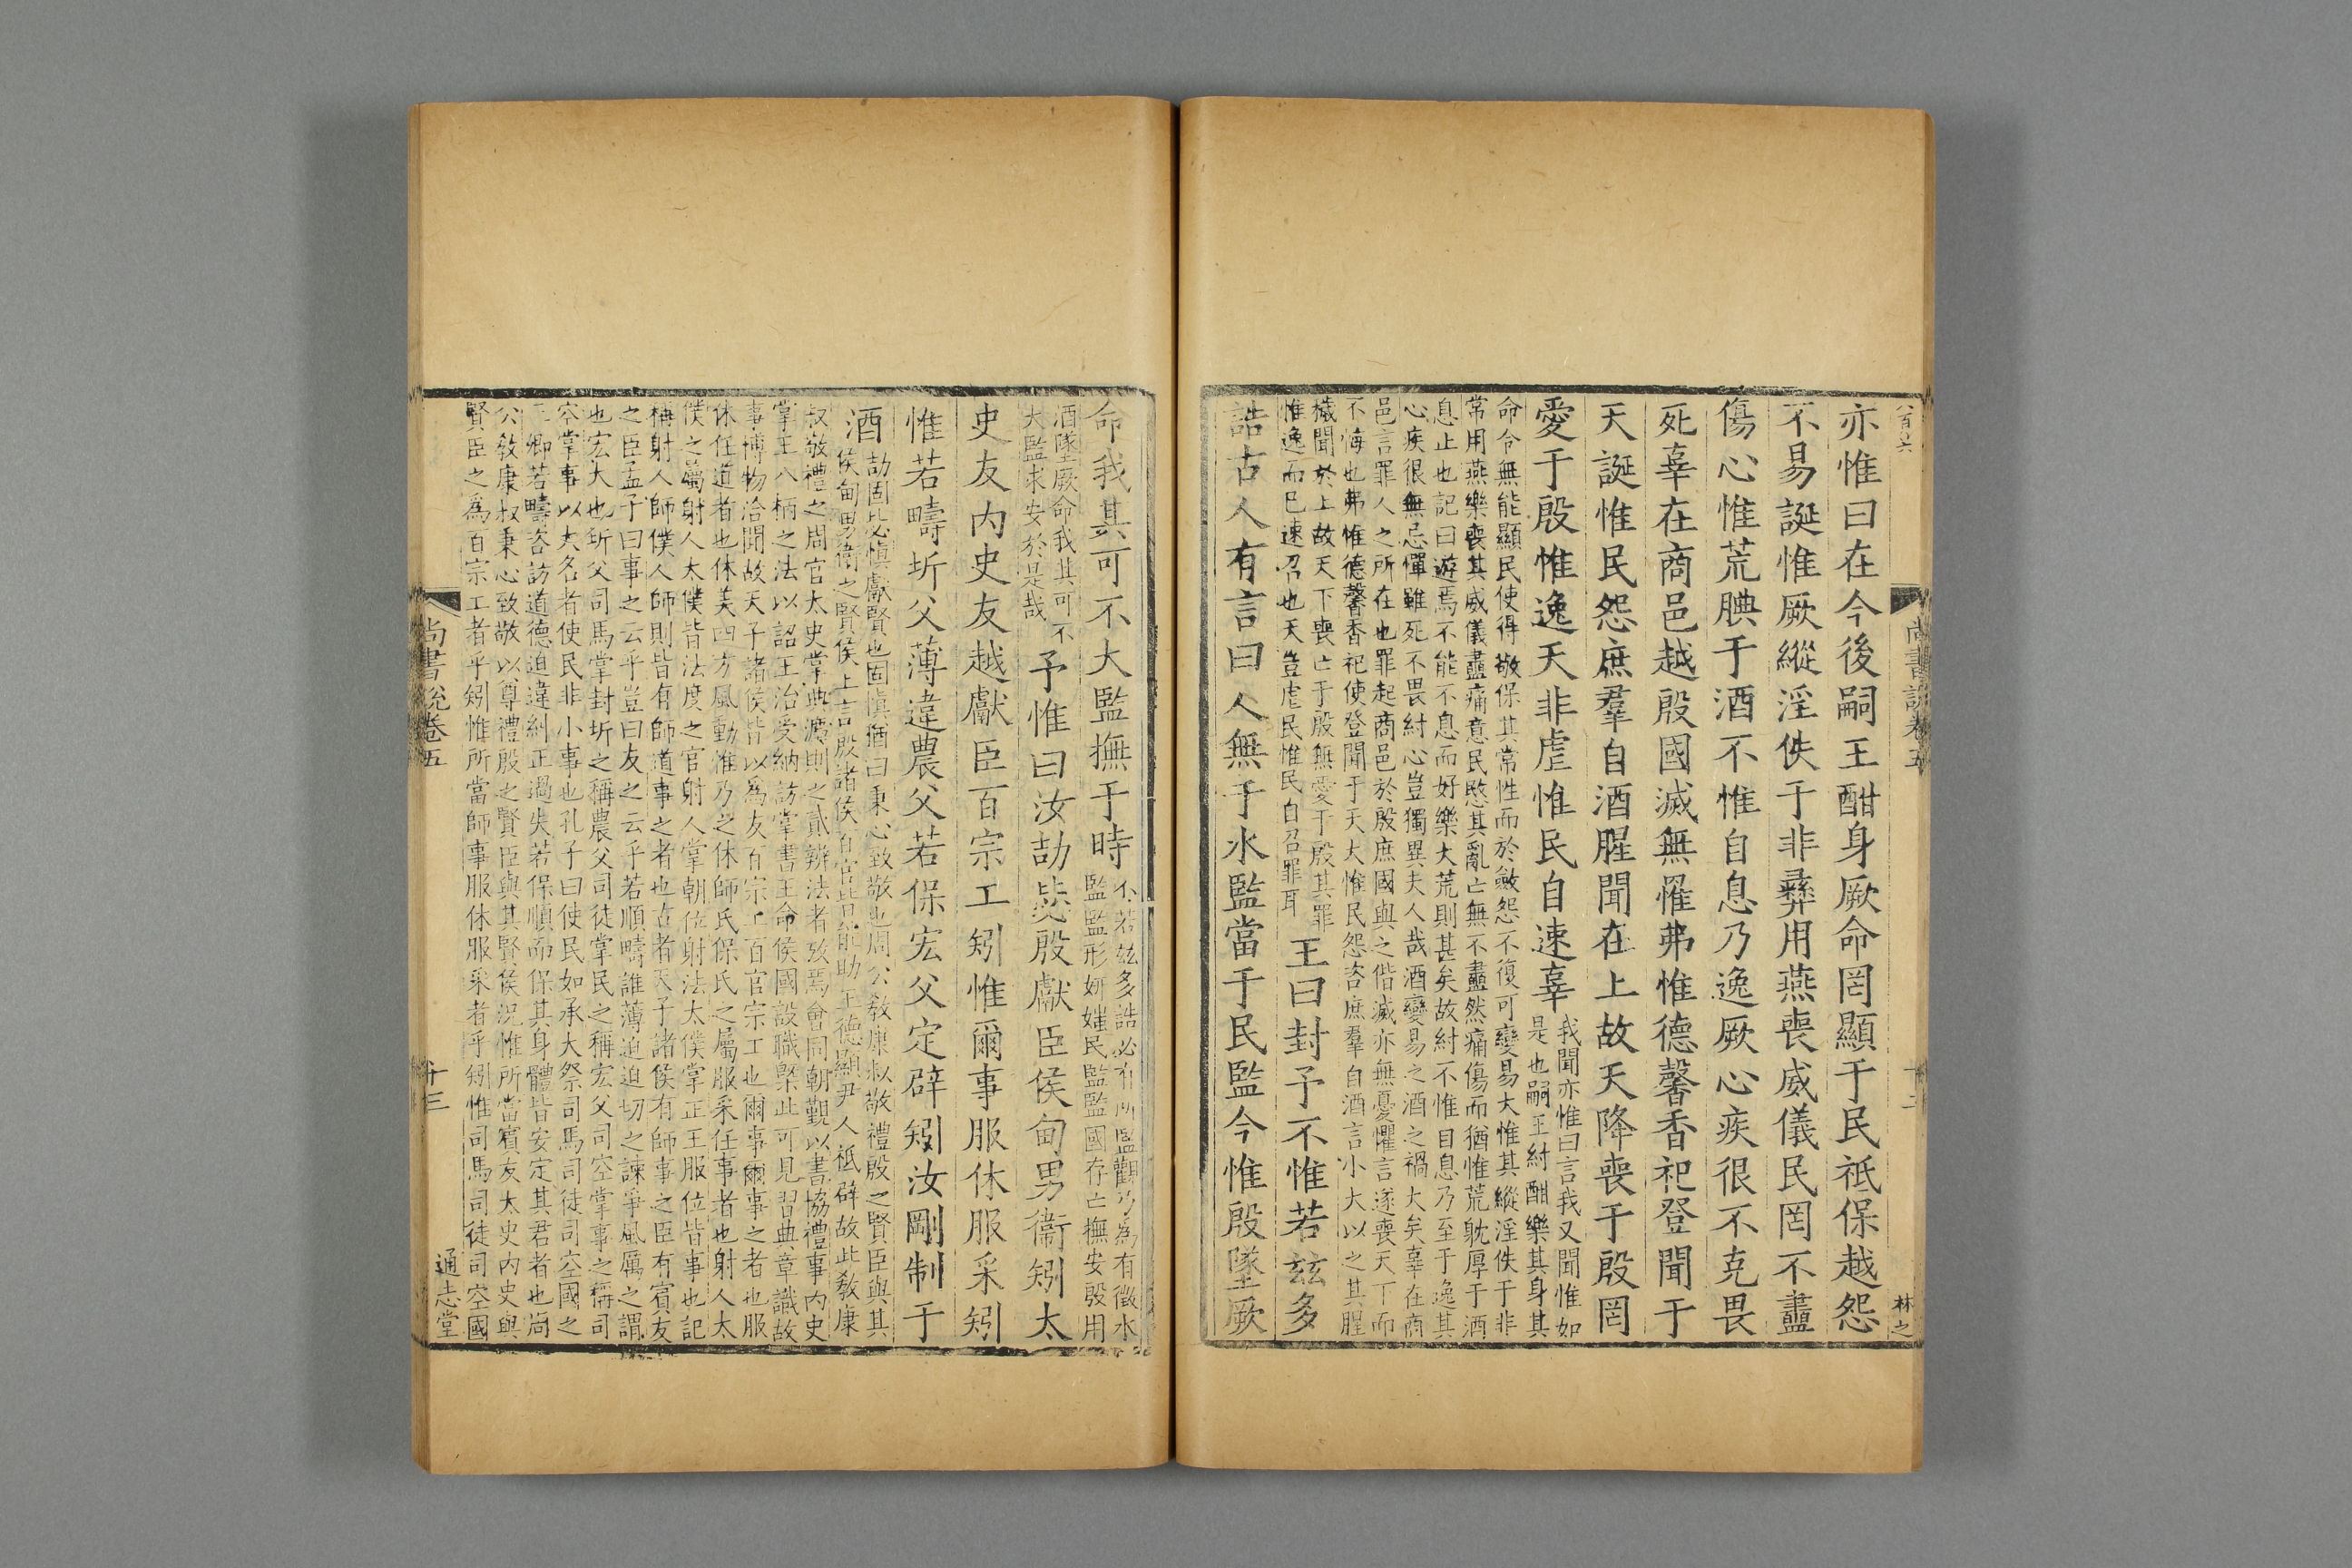 尚書說卷五
林之
亦惟曰在今後嗣王酣身厥命罔顯于民祗保越怨
不易誕惟厥縱淫佚于非彝用燕喪威儀民罔不衋
傷心惟荒腆于酒不惟自息乃逸厥心疾很不克畏
死辜在商邑越殷國滅無罹弗惟德馨香祀登聞于
天誕惟民怨庶羣自酒腥聞在上故天降喪于殷罔
愛于殷惟逸天非虐惟民自速辜
我聞亦惟曰言我又聞惟如
是也嗣王紂酣樂其身其
命令無能顯民使得敬保其常性而於斂怨不復可變易大惟其縱淫佚于非
常用燕樂喪其威儀衋痛意民愍其亂亡無不衋然痛傷而猶惟荒躭厚于酒
息止也記曰遊焉不能不息而好樂大荒則甚矣故紂不惟自息乃至于逸其
心疾很無忌憚雖死不畏紂心豈獨異夫人哉酒變易之酒之禍大矣辜在商
邑言罪人之所在也罪起商邑於殷庶國與之偕滅亦無憂懼言遂喪天下而
不悔也弗惟德馨香祀使登聞于天大惟民怨咨庶羣自酒言小大以之其腥
穢聞於上故天下喪亡于殷無愛于殷其罪
惟逸而已速召也天豈虐民惟民自召罪耳
王曰封予不惟若茲多
誥古人有言曰人無于水監當于民監今惟殷墜厥
命我其可不大監撫于時
不若茲多誥必有所監觀乃為有徵水
監監形妍媸民監監國存亡撫安殷用
酒墜厥命我其可不
大監求安於是哉
予惟曰汝劼毖殷獻臣侯甸男衞矧太
史友内史友越獻臣百宗工矧惟爾事服休服采矧
惟若疇圻父薄違農父若保宏父定辟矧汝剛制于
酒
劼固毖愼獻賢也固愼猶曰秉心致敬也周公敎康叔敬禮殷之賢臣與其
侯甸男衞之賢侯上言殷諸侯百官皆畏助王德顯尹人祗辟故此敎康
叔敬禮之周官太史掌典灋則之貳辨法者攷焉會同朝覲以書協禮事内史
掌王八柄之法以詔王治受納訪掌書王命侯國設職槩此可見習典章識故
事博物洽聞故天子諸侯皆以為友百宗工百官宗工也爾事爾事之者也服
休任道者也休美四方風動惟乃之休師氏保氏之屬服采任事者也射人太
僕之屬射人太僕皆法度之官射人掌朝位射法太僕掌正王服位皆事也記
稱射人師僕人師則皆有師道事之者也古者天子諸侯有師事之臣有賓友
之臣孟子曰事之云乎豈曰友之云乎若順疇誰薄迫迫切之諫爭風厲之謂
也宏大也圻父司馬掌封圻之稱農父司徒掌民之稱宏父司空掌事之稱司
空掌事以大名者使民非小事也孔子曰使民如承大祭司馬司徒司空國之
三卿若疇咨訪道德迫違糾正過失若保順而保其身體皆安定其君者也尚
公敎康叔秉心致敬以尊禮殷之賢臣與其賢侯況惟所當賓友太史内史與
賢臣之爲百宗工者乎矧惟所當師事服休服采者乎矧惟司馬司徒司空國
尚書說卷五
十三
通志堂